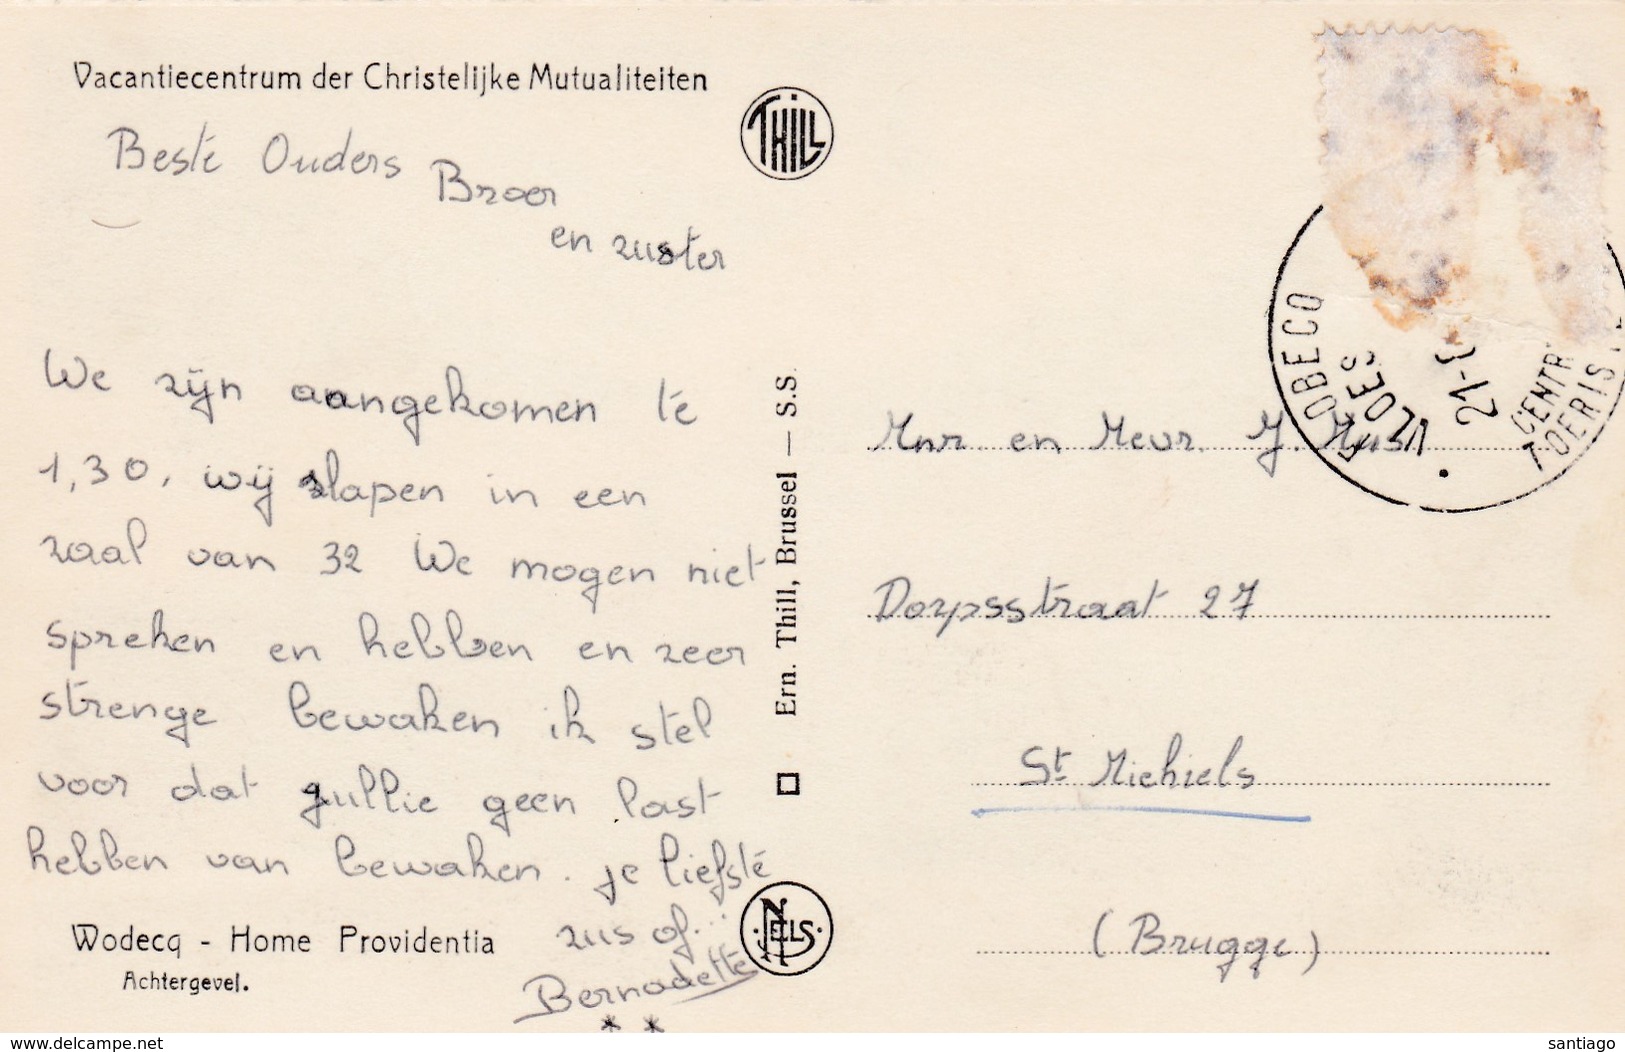 Vacantiecentrum der Christelijke Mutualiteiten
THILL
Beste Ouders Broer
en zuster
We zijn aangekomen te
1,30, wij slapen in een
zaal van 32 We mogen niet
spreken en hebben en zeer
strenge bewaken ik stel
voor dat jullie geen last
hebben van bewaken. je liefste
zus of...
Bernadette
* *
Wodecq - Home Providentia
Achtergevel.
Ern. Thill, Brussel — S.S.
NELS
OBECQ
VLOES
21-
CENTR
TOERIS
Mnr en Mevr. J.
Dorpsstraat 27
St Michiels
(Brugge)
www.delcampe.net
santiago